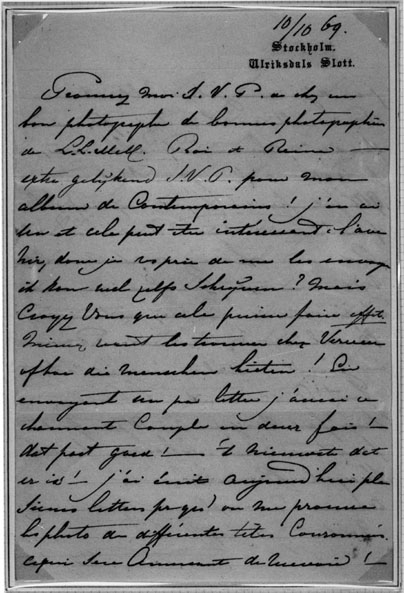 10/10 69.
Stockholm.
Ulriksdals Slott.
moi S. V. P. a chez un
bon photographe de bonnes photographies
de L.L. M.M. Roi et Reine
gelijkend S.V.P. pour mon
album de Contemporains ! j'en ai
et cela peut être intéressant l'ave
nir, donc je vs prie de me les envoy
ik kan wel zelfs Schrijven ? mais
Croyez Vous que cela puisse faire effet.
Mieux vaut les trouver chez
die menschen hieten ! En
envoyant un par lettre j'aurai ce
charmant Couple en deux fois !
dat past goed ! 't nieuwste dat
er is ! j'ai écrit aujourd'hui plu
sieurs lettres pr qu'on me procure
les photo de différentes têtes Couronnées.
ce qui sera Amusant de !